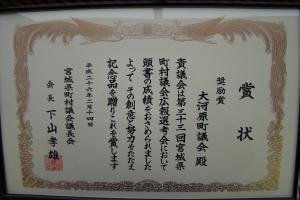 賞状
奨励賞
大河原町議会 殿
貴議会は第三十三回宮城県
町村議会広報選考会において
頭書の成績をおさめられました
よって その創意と努力をたたえ
記念品を贈りこれを賞します
平成二十六年二月十四日
宮城県町村議会議長会
会長 下山孝雄